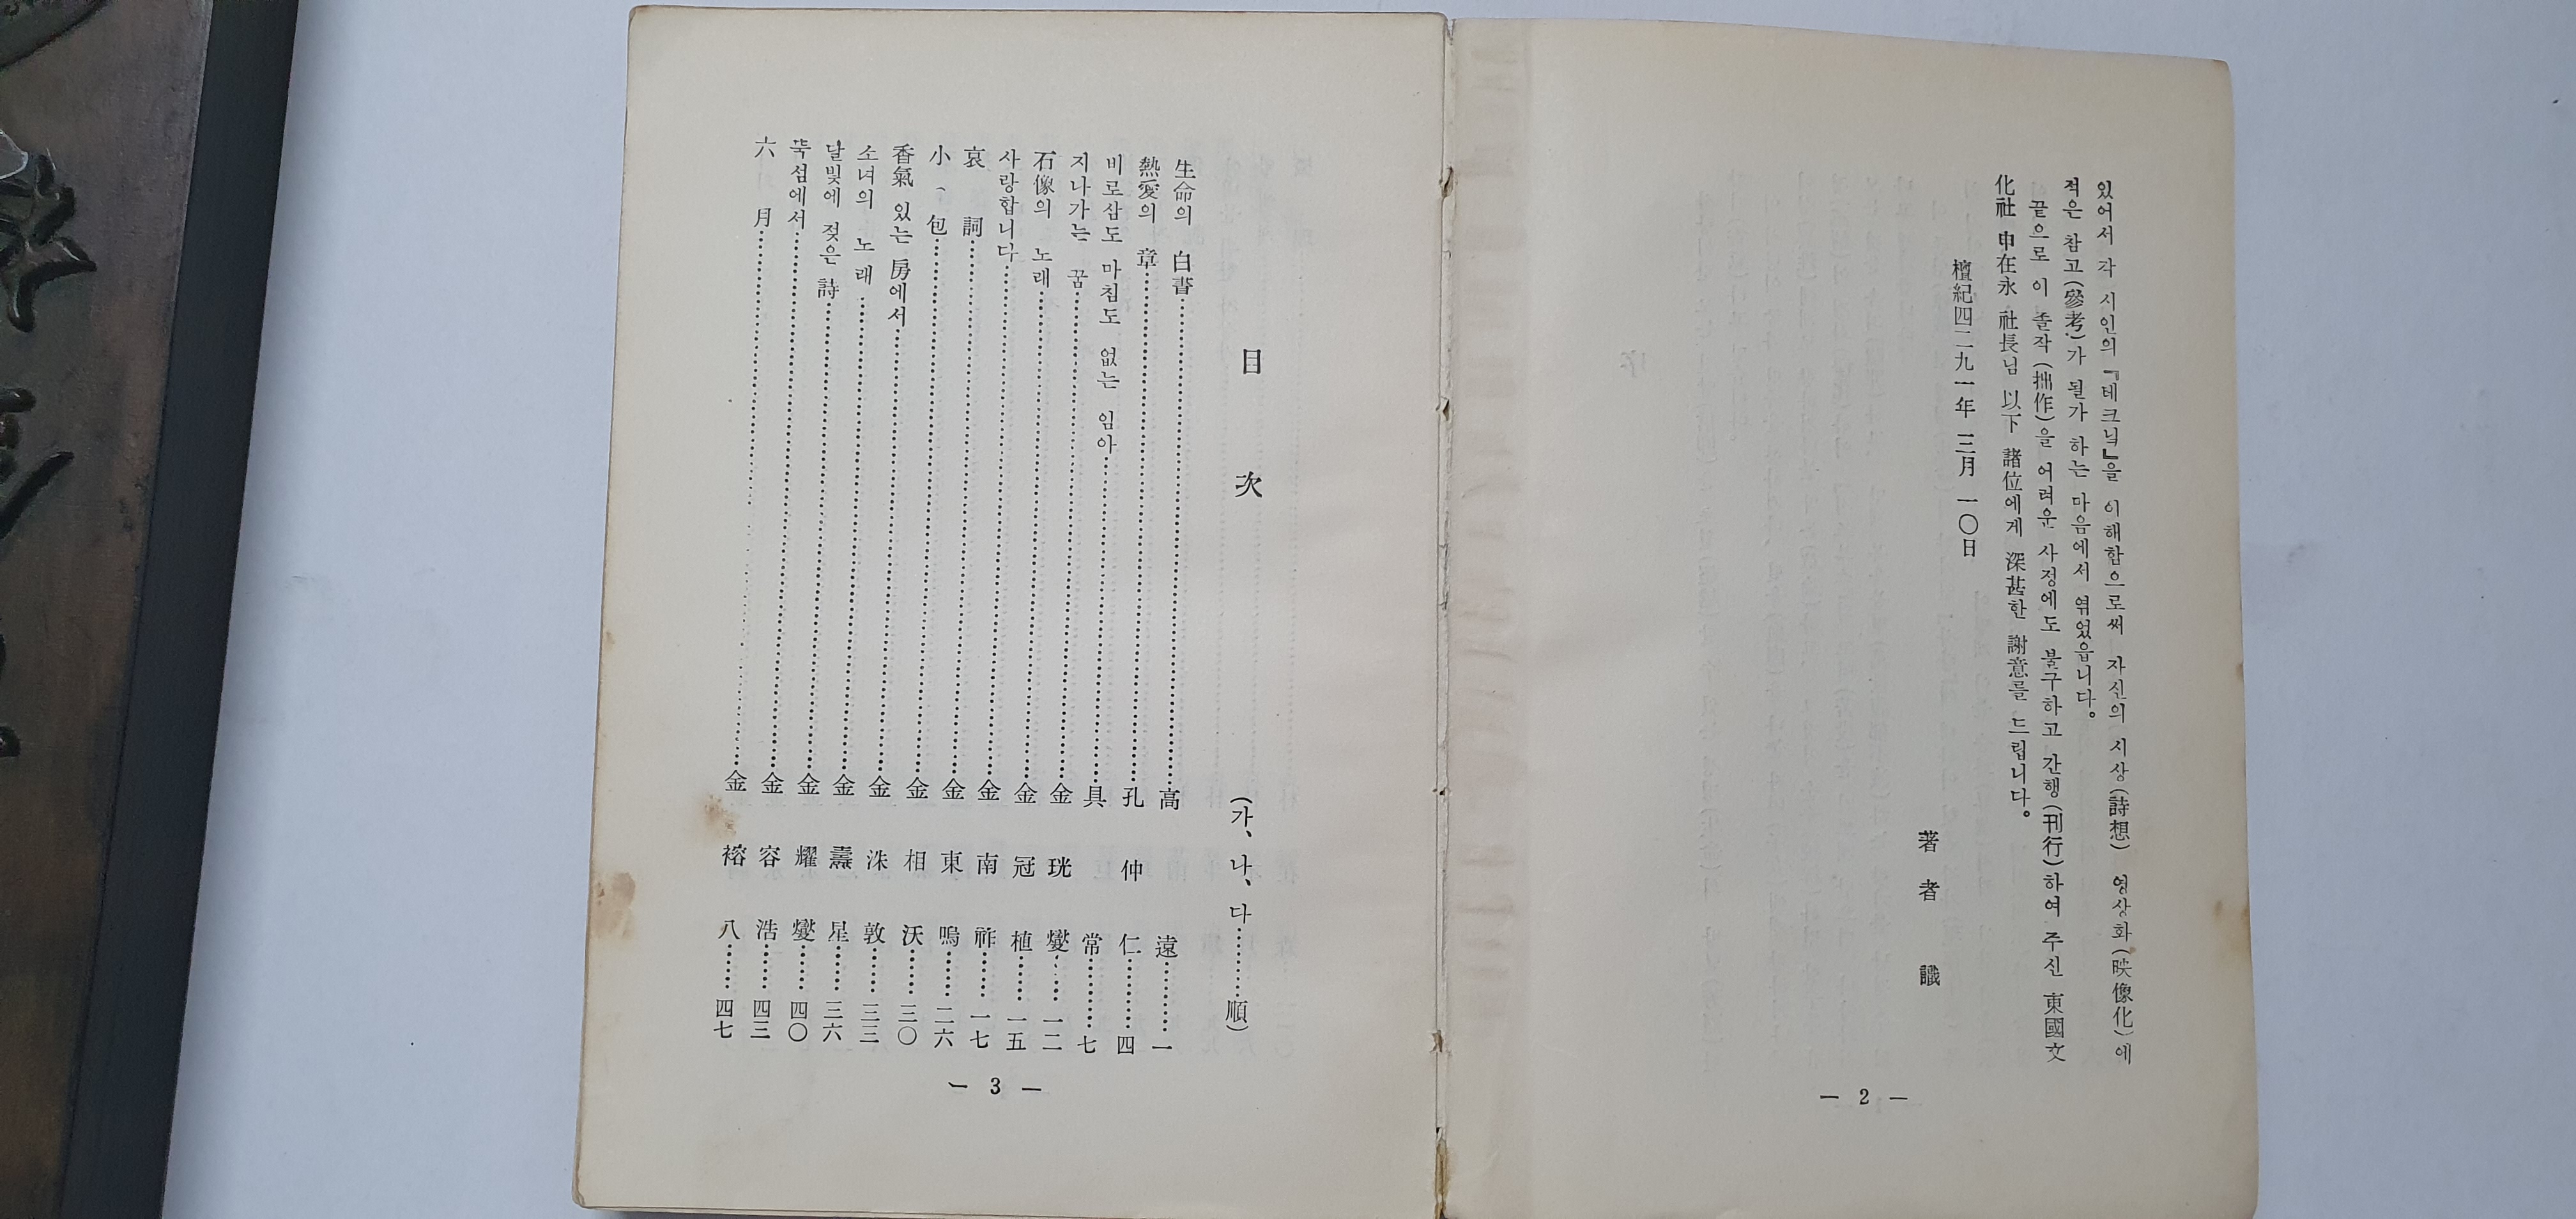 있어서 각 시인의 『테크닠』을 이해함으로써 자신의 시상(詩想) 영상화(映像化)에
적은 참고(參考)가 될가 하는 마음에서 엮었읍니다。
끝으로 이 졸작(拙作)을 어려운 사정에도 불구하고 간행(刊行)하여 주신 東國文
化社 申在永 社長님 以下 諸位에게 深甚한 謝意를 드립니다。
檀紀四二九一年 三月 一〇日
著者 識
— 2 —
目次
(가、나、다………順)
生命의 白書………高遠………一
熱愛의 章………孔仲仁………四
비로삼도 마침도 없는 임아………具常………七
지나가는 꿈………金珖燮………一二
石像의 노래………金冠植………一五
사랑합니다………金南祚………一七
哀詞………金東鳴………二六
小包………金相沃………三〇
香氣 있는 房에서………金洙敦………三三
소녀의 노래………金 星………三六
달빛에 젖은 詩………金耀燮………四〇
뚝섬에서………金容浩………四三
六月………金 八………四七
— 3 —